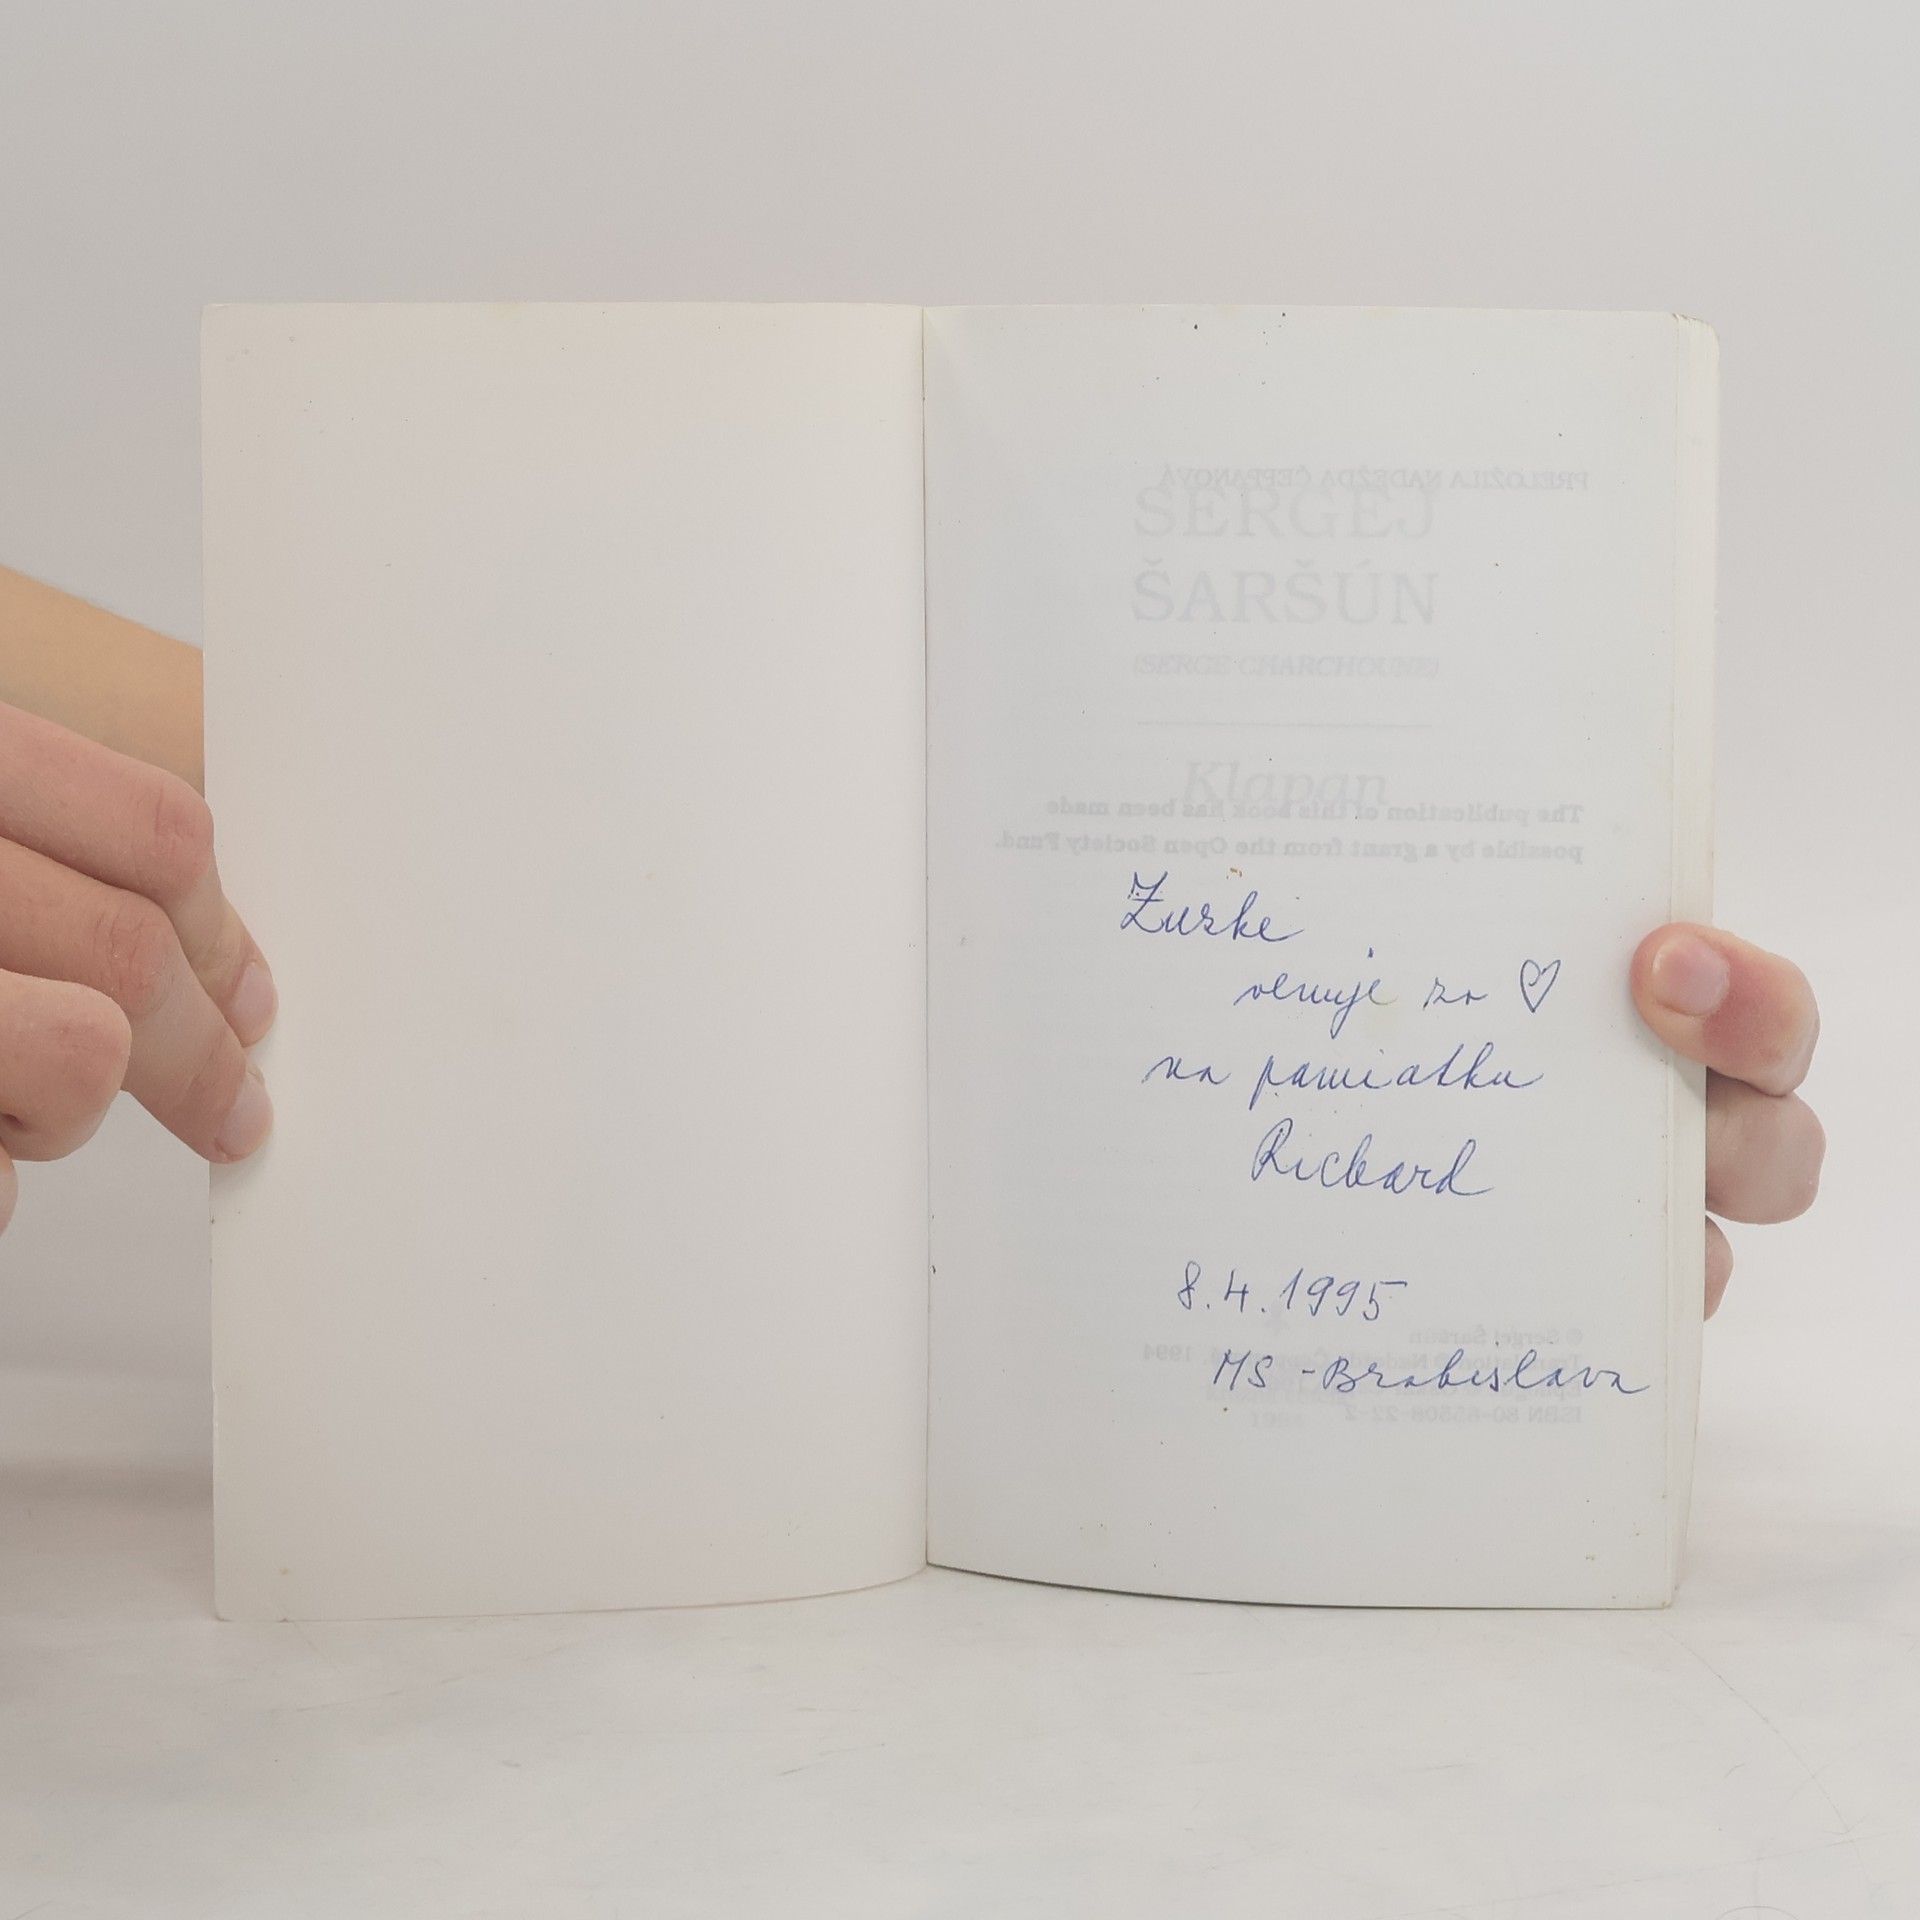 PRELOŽILA NADEŽDA ČEPPANOVÁ
SERGEJ
ŠARŠÚN
(SERGE CHARCHOUNE)
Klapan
The publication of this book has been made
possible by a grant from the Open Society Fund.
Zuzke
venuje zo ♡
na pamiatku
Richard
8.4.1995
MS - Bratislava
© Sergej Šaršún
Translation © Nadežda Čeppanová, 1994
ISBN 80-85508-22-2